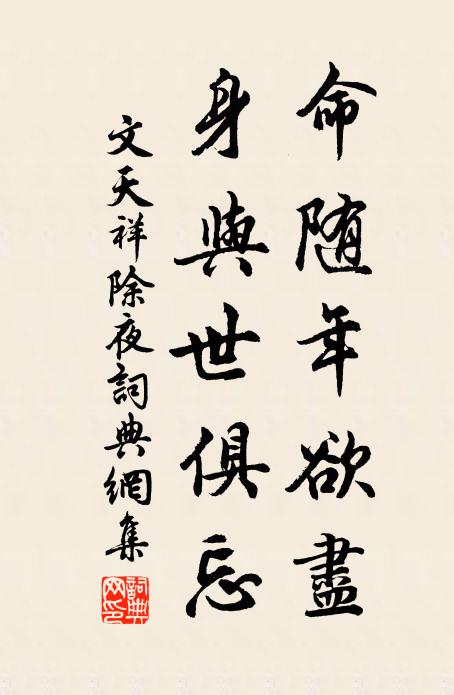 命随年欲盡
身與世俱忘
文天祥除夜詞典網集
詞典網印